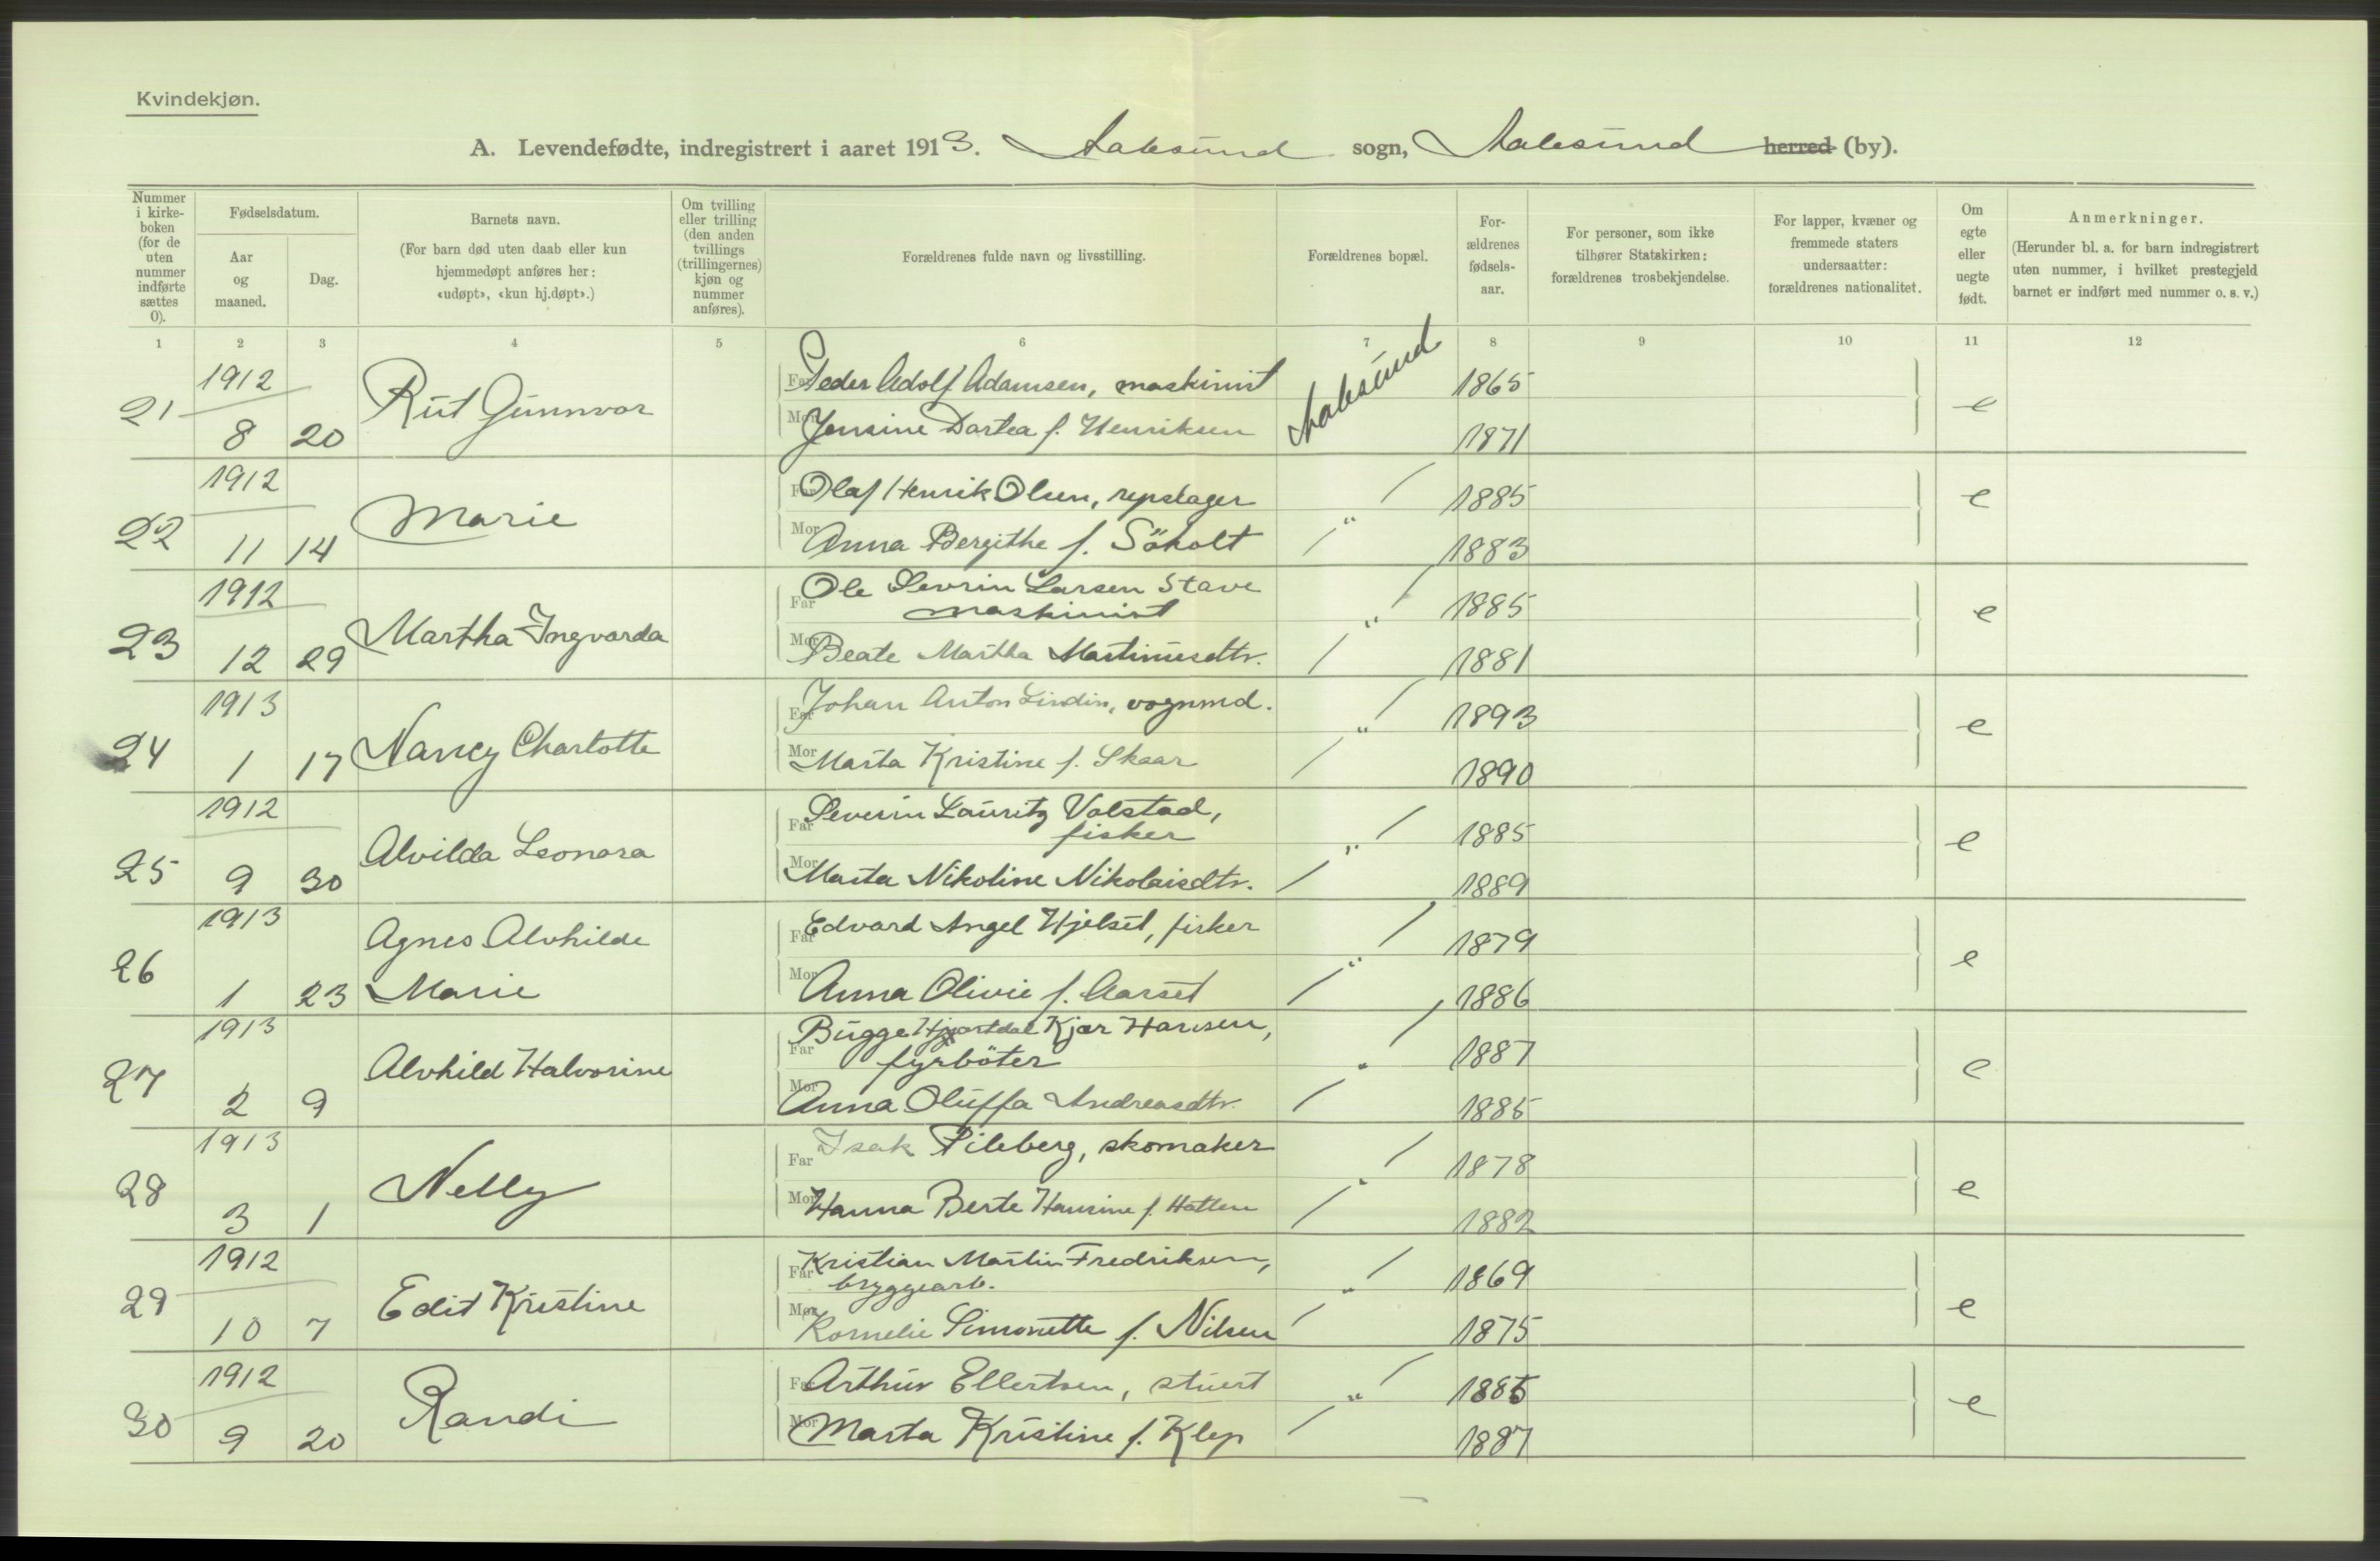 Kvindekjøn.
A. Levendefødte, indregistrert i aaret 1913. Aalesund sogn, Aalesund herred (by).
Nummer i kirke-boken (for de uten nummer indførte sættes 0).
Fødselsdatum.
Aar og maaned.
Dag.
Barnets navn.
(For barn død uten daab eller kun hjemmedøpt anføres her: «udøpt», «kun hj.døpt».)
Om tvilling eller trilling (den anden tvillings (trillingernes) kjøn og nummer anføres).
Forældrenes fulde navn og livsstilling.
Forældrenes bopæl.
For-ældrenes fødsels-aar.
For personer, som ikke tilhører Statskirken: forældrenes trosbekjendelse.
For lapper, kvæner og fremmede staters undersaatter: forældrenes nationalitet.
Om egte eller uegte født.
Anmerkninger.
(Herunder bl. a. for barn indregistrert uten nummer, i hvilket prestegjeld barnet er indført med nummer o. s. v.)
1 2 3 4 5 6 7 8 9 10 11 12
21 1912 8 20 Rut Gunnvor
Far Peder Adolf Adamsen, maskinist Aalesund 1865 e
Mor Jensine Dortea f. Henriksen 1871
22 1912 11 14 Marie
Far Olaf Henrik Olsen, repslager " 1885 e
Mor Anna Bergithe f. Söholt 1883
23 1912 12 29 Martha Ingvarda
Far Ole Sevrin Larsen Stave
maskinist " 1885 e
Mor Beate Martha Martinusdtr. 1881
24 1913 1 17 Nancy Charlotte
Far Johan Anton Lindin, vognmd. " 1893 e
Mor Marta Kristine f. Skaar 1890
25 1912 9 30 Alvilda Leonora
Far Severin Lauritz Valstad,
fisker " 1885 e
Mor Marta Nikoline Nikolaisdtr. 1889
26 1913 1 23 Agnes Alvhilde
Marie
Far Edvard Angel Hjelset, fisker " 1879 e
Mor Anna Olivie f. Aarset 1886
27 1913 2 9 Alvhild Halvorine
Far Bugge Hjortdal Kjær Hansen,
fyrböter " 1887 e
Mor Anna Oluffa Andreasdtr. 1885
28 1913 3 1 Nelly
Far Isak Pileberg, skomaker " 1878 e
Mor Hanna Berte Hansine f. Hatlen 1882
29 1912 10 7 Edit Kristine
Far Kristian Martin Fredriksen,
bryggearb. " 1869 e
Mor Kornelie Simonette f. Nilsen 1875
30 1912 9 20 Randi
Far Arthur Ellertsen, stuert " 1885 e
Mor Marta Kristine f. Klep 1887